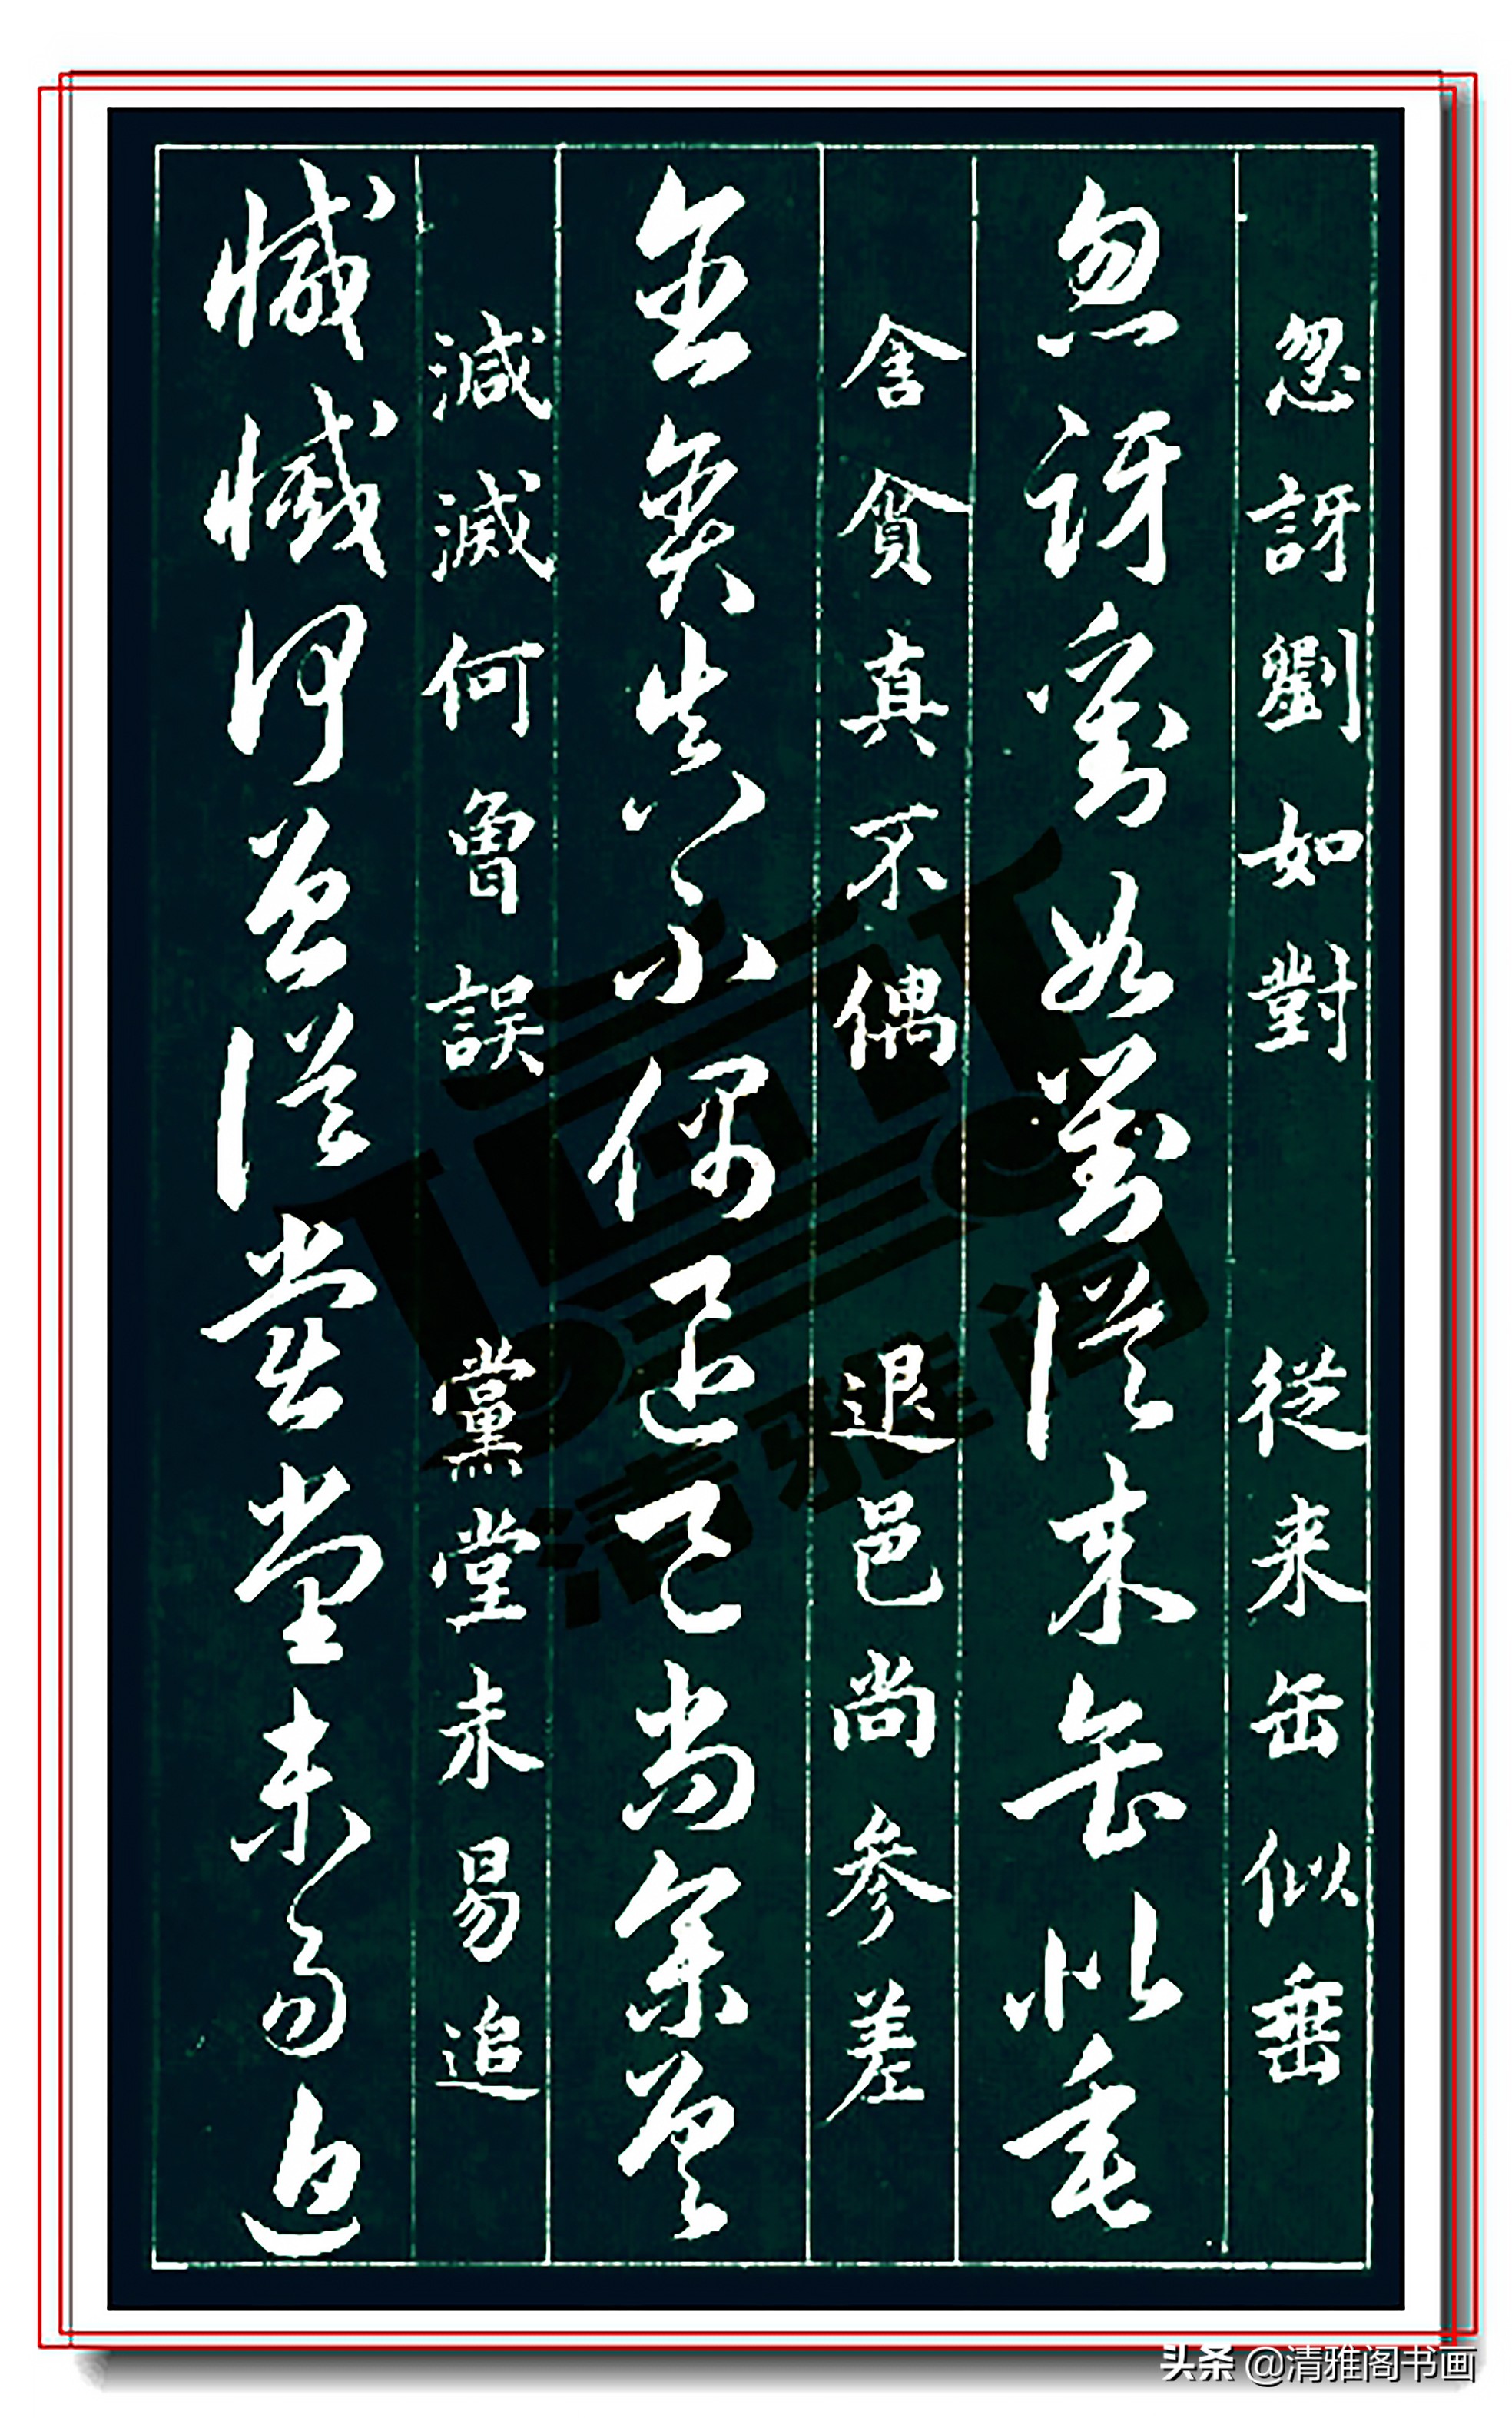 忽訝劉如對 從来缶似垂
忽訝劉如對從来缶似垂
含貪真不偶 退邑尚參差
含貪真不偶退邑尚參差
減滅何曾誤 黨堂未易追
減滅何曾誤黨堂未易追
清雅阁
头条 @清雅阁书画